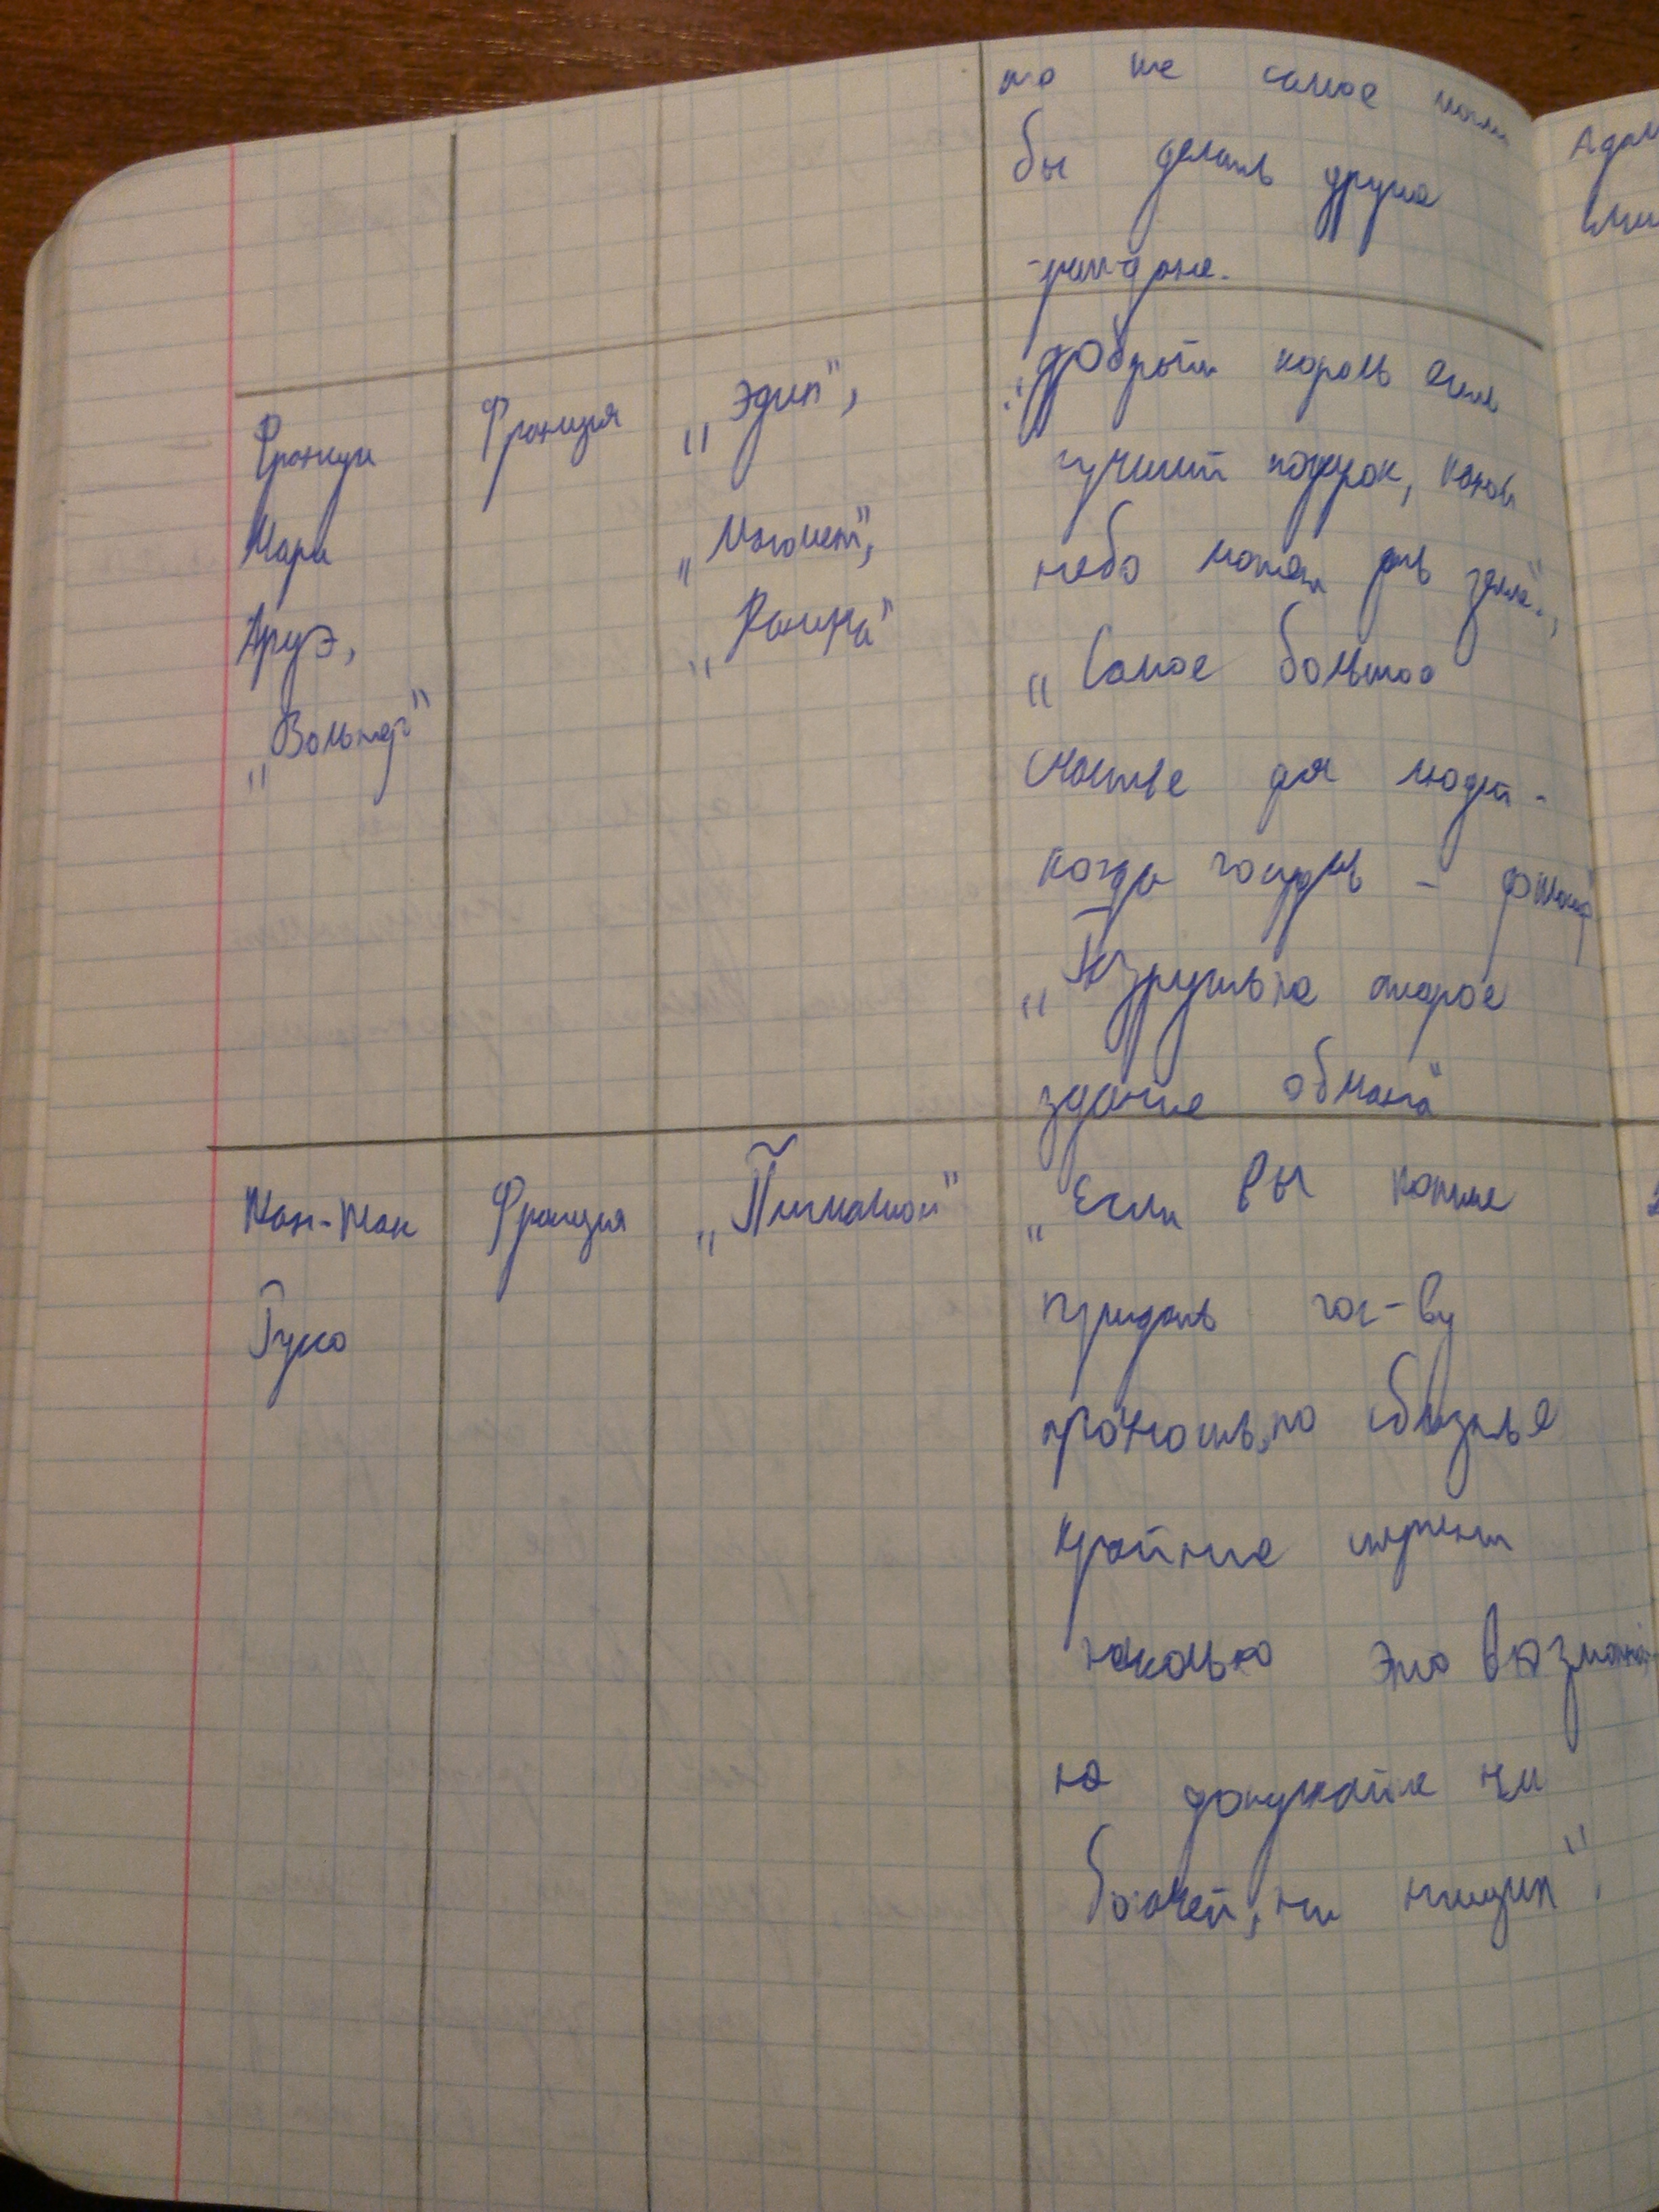 то же самое могли
бы делать другие
граждане.
Франсуа Франция „Эдип",
Мари „Магомет",
Аруэ,
„Вольтер"
„добрый король есть
лучший подарок, какой
небо может дать земле",
„Самое большое
счастье для людей -
когда государь - философ"
„Разрушьте старое
здание обмана"
Жан-Жак Франция „Пигмалион"
Руссо
„Если вы хотите
придать гос-ву
прочность, то сблизьте
крайние
насколько это возможно
не допускайте ни
богачей, ни нищих".
Адам